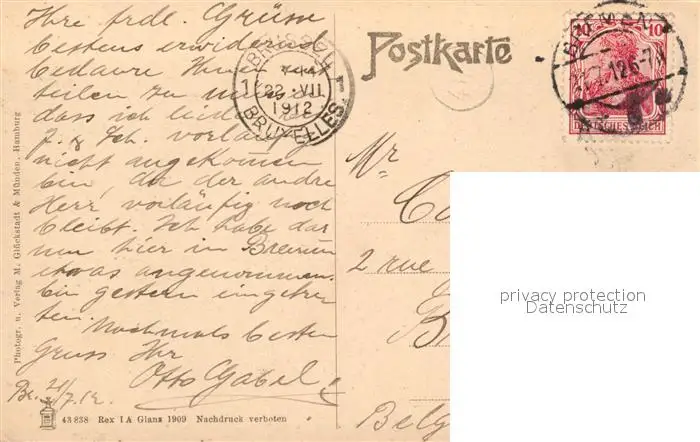 Ihre frdl. Grüsse
bestens erwidernd
bedaure Ihnen mit
teilen zu müssen
dass ich leider
vorläufig
nicht angekommen
bin, da der andre
Herr vorläufig noch
bleibt. Ich habe da
nun hier in Bremen
etwas angenommen.
bin gestern eingetre
ten.
Nochmals besten
Gruss Ihr
Otto Gabel
Br. 21/7.12.
43 838 Rex I A Glanz 1909 Nachdruck verboten
Photogr. u. Verlag M. Glückstadt & Münden, Hamburg
BRUXELLES
1 22 VII
1912
BRUSSEL
Postkarte
BREMEN
10 10
DEUTSCHES REICH
Mr
2 rue
Belg
privacy protection
Datenschutz